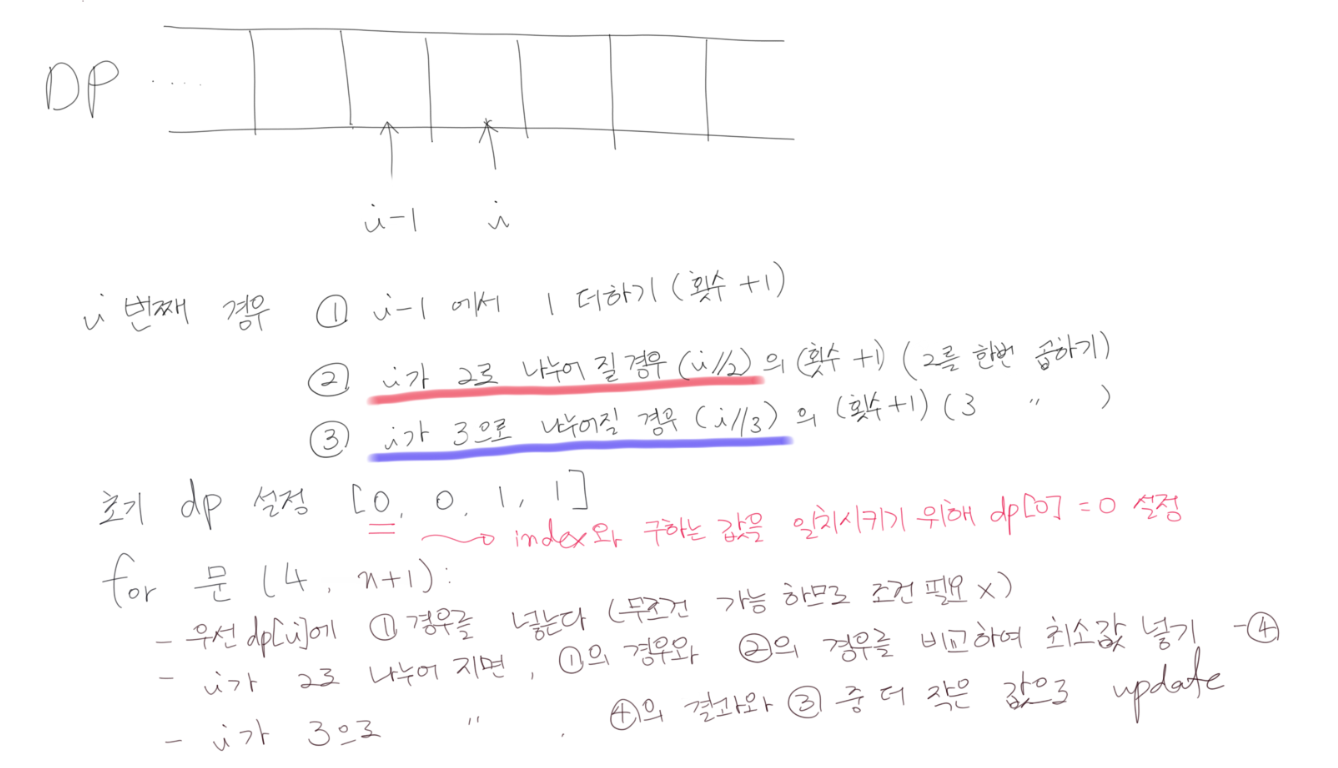 DP .....
i-1 i
i 번째 경우 ① i-1 에서 1 더하기 (횟수 +1)
② i가 2로 나누어 질 경우 (i//2) 의 (횟수 +1) (2를 한번 곱하기)
③ i가 3으로 나누어질 경우 (i//3) 의 (횟수+1) (3 〃 )
초기 dp 설정 [0, 0, 1, 1]
index와 구하는 값을 일치시키기 위해 dp[0] = 0 설정
for 문 (4, n+1):
- 우선 dp[i]에 ① 경우를 넣는다 (무조건 가능 하므로 조건 필요 x)
- i가 2로 나누어 지면, ①의 경우와 ②의 경우를 비교하여 최소값 넣기 -④
- i가 3으로 〃 , ④의 결과와 ③ 중 더 작은 값으로 update